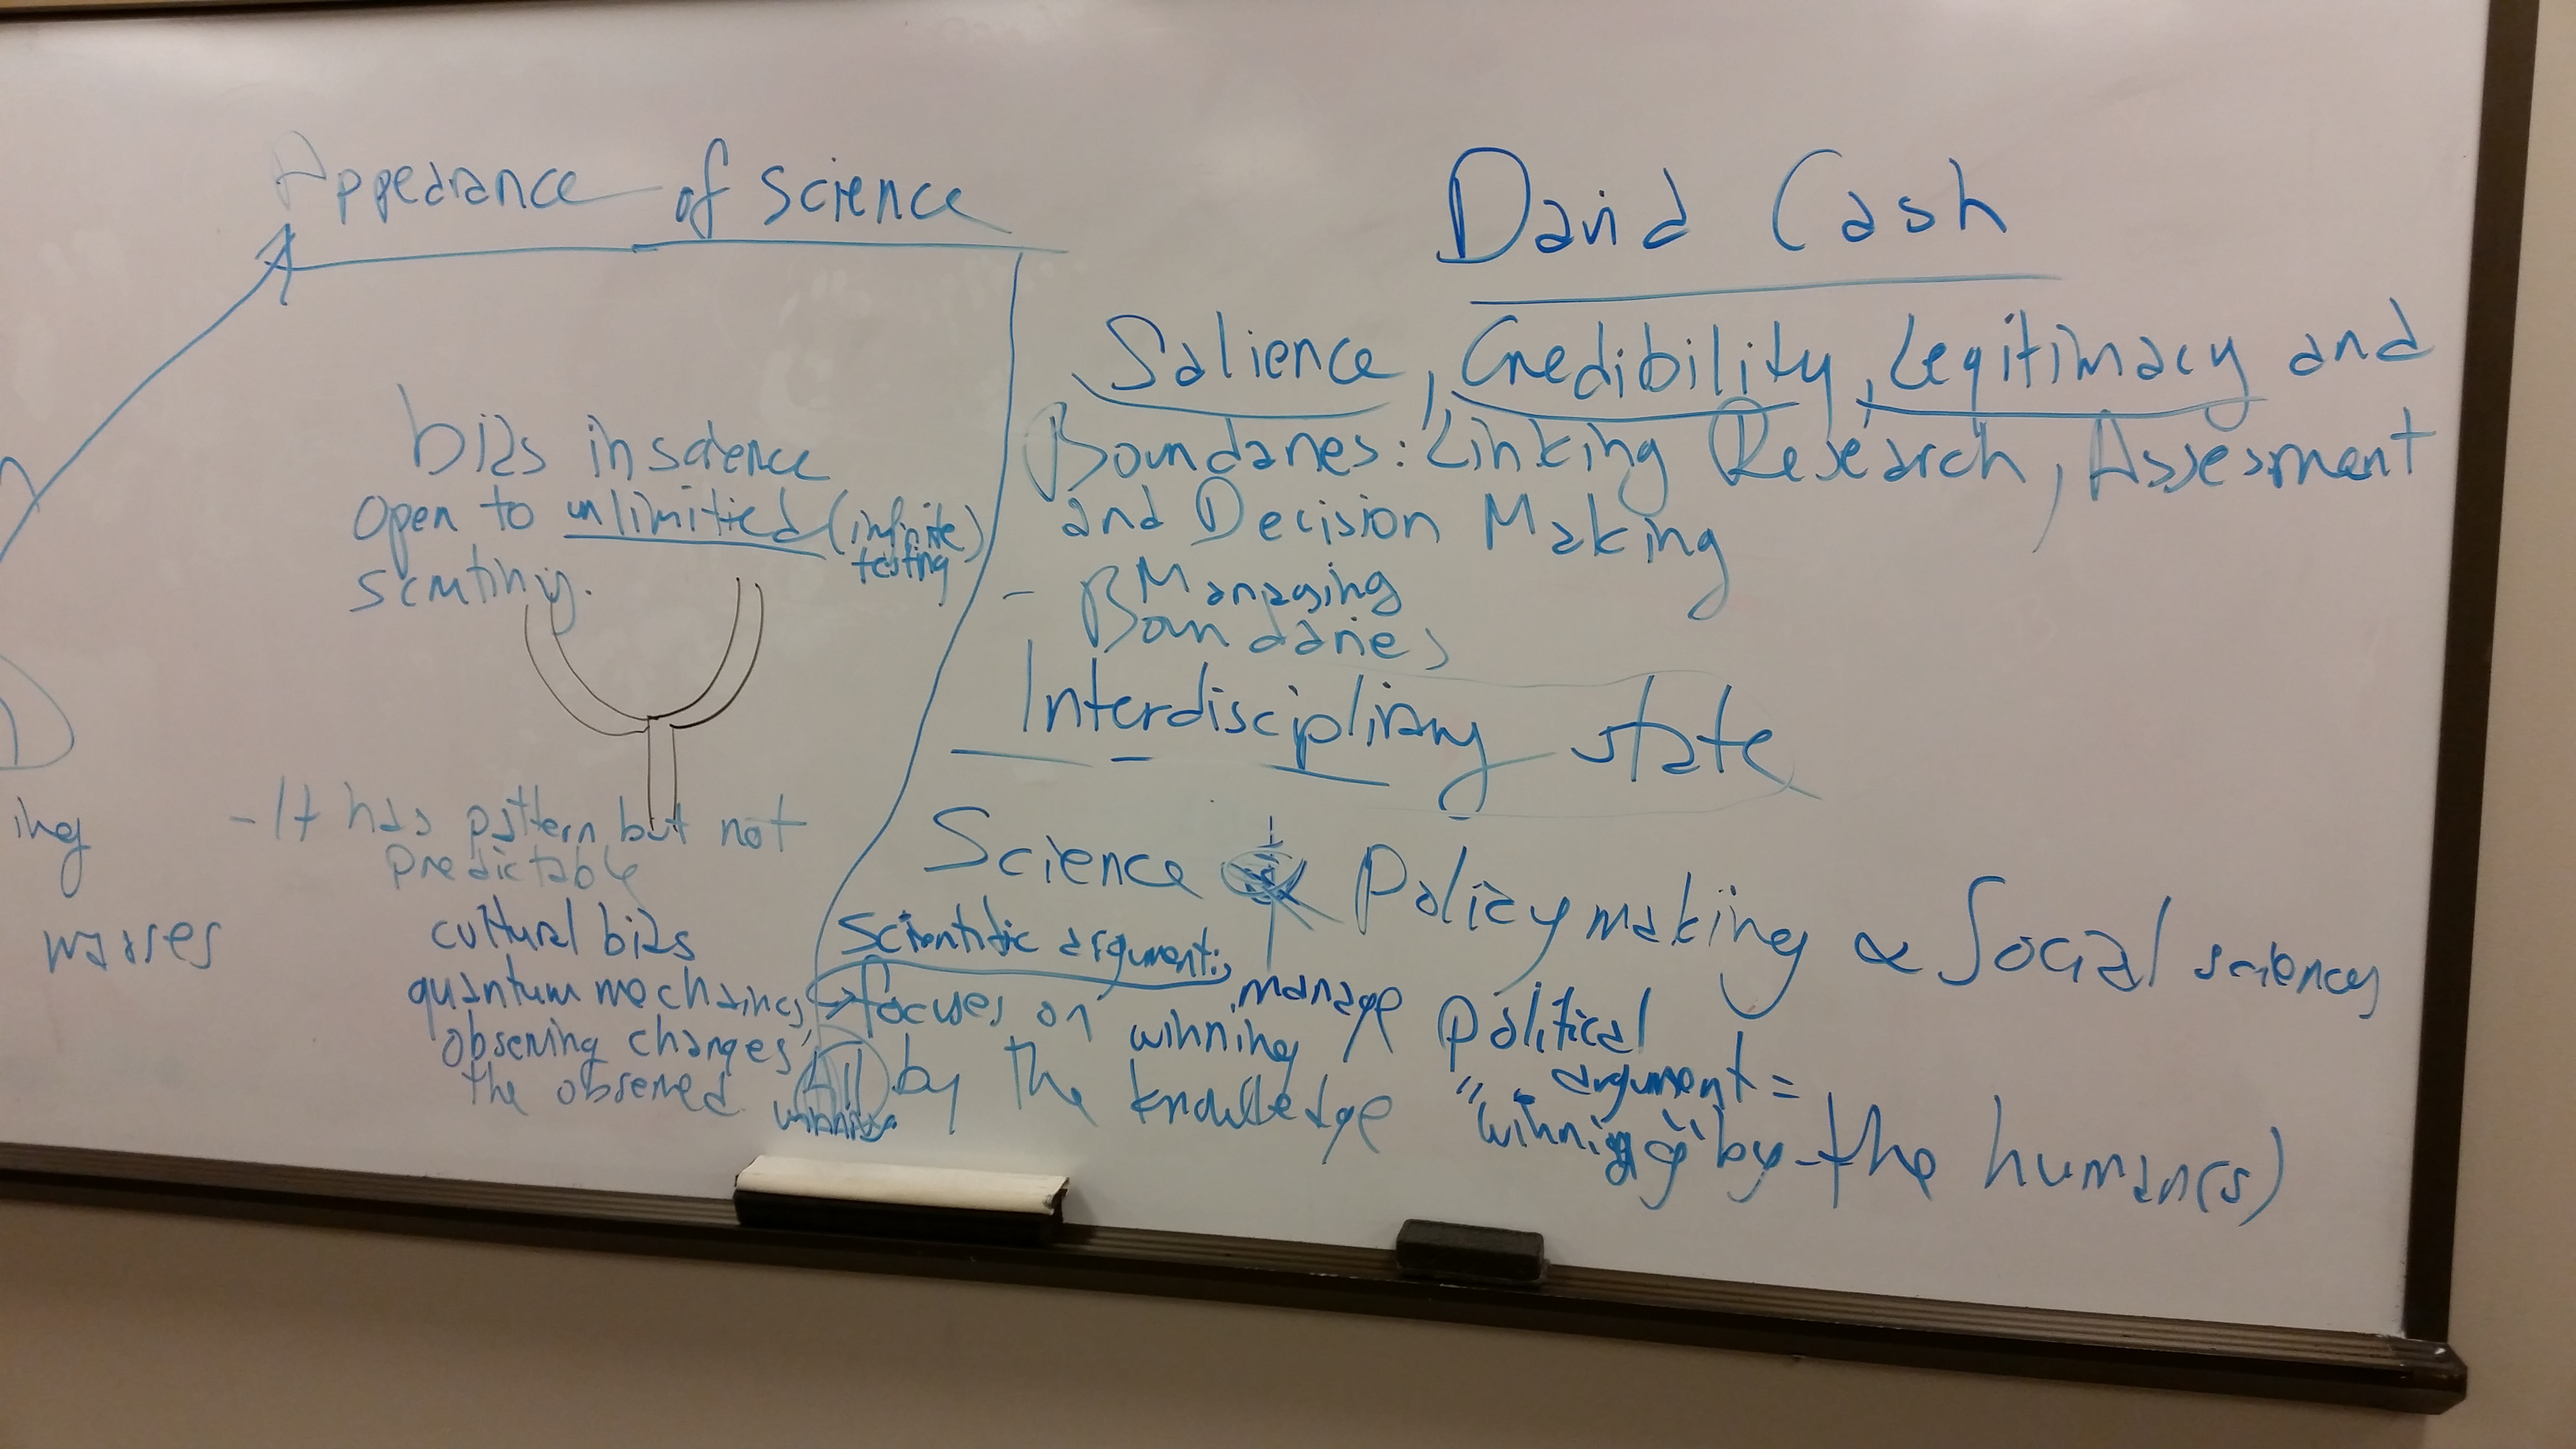 Appearance of science
bias in science
open to unlimitied (infinite)
testing
scrutiny.
- It has pattern but not
predictable
cultural bias
quantum mechanics
observing changes
the observed
ing
masses
David Cash
Salience, Credibility, Legitimacy and
Boundaries: Linking Research, Assesment
and Decision Making
- Managing
Boundaries
Interdisciplinary state
Science & Policy making ∝ Social sciences
Scientific argument:
focuses on winning
All by the knowledge
winning
manage political
argument =
"winning" by the human(s)